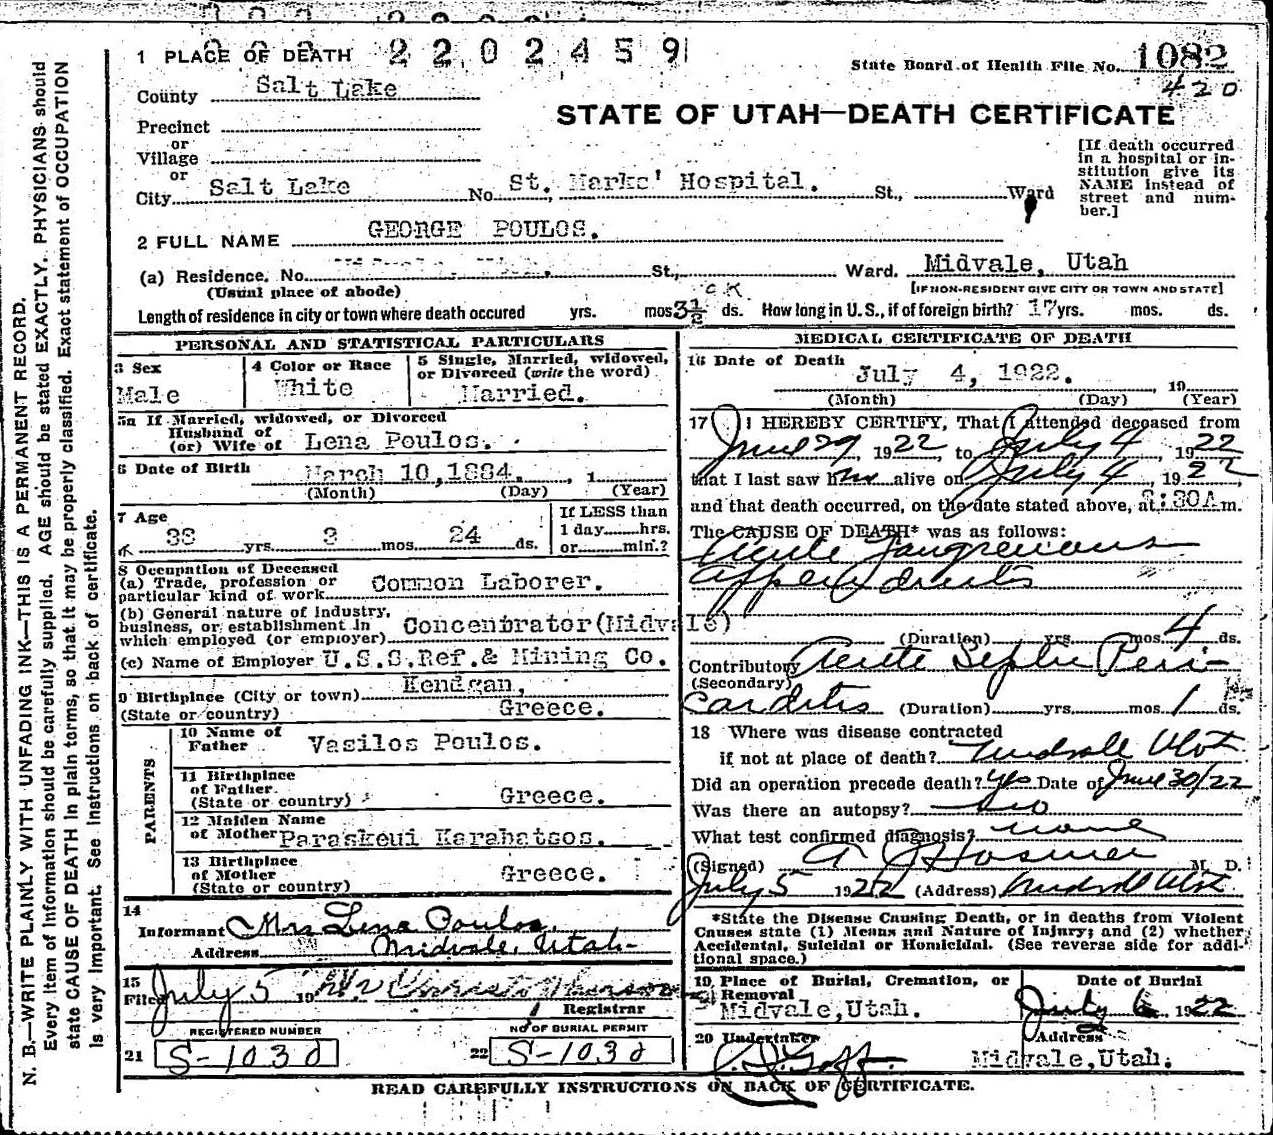 2202459
1 PLACE OF DEATH
State Board of Health File No. 1082
420
County Salt Lake
STATE OF UTAH—DEATH CERTIFICATE
Precinct
or
Village
or
City Salt Lake No. St. Marks' Hospital. St., Ward
[If death occurred
in a hospital or in-
stitution give its
NAME instead of
street and num-
ber.]
2 FULL NAME GEORGE POULOS.
(a) Residence. No. St., Ward. Midvale, Utah
(Usual place of abode) [IF NON-RESIDENT GIVE CITY OR TOWN AND STATE]
OK
Length of residence in city or town where death occured yrs. mos 3½ ds. How long in U.S., if of foreign birth? 17 yrs. mos. ds.
PERSONAL AND STATISTICAL PARTICULARS
3 Sex
Male
4 Color or Race
White
5 Single, Married, widowed,
or Divorced (write the word)
Married.
5a If Married, widowed, or Divorced
Husband of
(or) Wife of Lena Poulos.
6 Date of Birth March 10, 1884. , 1
(Month) (Day) (Year)
7 Age
38 yrs. 3 mos. 24 ds.
If LESS than
1 day hrs.
or min.?
8 Occupation of Deceased
(a) Trade, profession or
particular kind of work Common Laborer.
(b) General nature of industry,
business, or establishment in
which employed (or employer) Concentrator (Midvale)
(c) Name of Employer U.S.S.Ref.& Mining Co.
9 Birthplace (City or town) Kendgan,
(State or country) Greece.
PARENTS
10 Name of
Father Vasilos Poulos.
11 Birthplace
of Father.
(State or country) Greece.
12 Maiden Name
of Mother Paraskeui Karabatsos.
13 Birthplace
of Mother
(State or country) Greece.
14
Informant Mrs Lena Poulos.
Address Midvale, Utah-
15
Filed July 5 19
Registrar
REGISTERED NUMBER
21 S-1030
NO OF BURIAL PERMIT
22 S-1030
MEDICAL CERTIFICATE OF DEATH
16 Date of Death
July 4, 1922. , 19
(Month) (Day) (Year)
17 I HEREBY CERTIFY, That I attended deceased from
June 29, 1922, to July 4, 1922
that I last saw him alive on July 4, 1922,
and that death occurred, on the date stated above, at 8:30A m.
The CAUSE OF DEATH* was as follows:
Acute Gangrenous
Appendicitis
(Duration) yrs. mos. 4 ds.
Contributory Acute Septic Peri-
(Secondary)
carditis (Duration) yrs. mos. 1 ds.
18 Where was disease contracted
if not at place of death? Midvale Utah
Did an operation precede death? yes Date of June 30/22
Was there an autopsy? no
What test confirmed diagnosis? none
(Signed) A J Hosmer M. D.
July 5 1922 (Address) Midvale Utah
*State the Disease Causing Death, or in deaths from Violent
Causes state (1) Means and Nature of Injury; and (2) whether
Accidental, Suicidal or Homicidal. (See reverse side for addi-
tional space.)
19 Place of Burial, Cremation, or
Removal
Midvale, Utah.
Date of Burial
July 6 1922
20 Undertaker
Goff
Address
Midvale, Utah.
READ CAREFULLY INSTRUCTIONS ON BACK OF CERTIFICATE.
N. B.—WRITE PLAINLY WITH UNFADING INK—THIS IS A PERMANENT RECORD.
Every item of information should be carefully supplied. AGE should be stated EXACTLY. PHYSICIANS should
state CAUSE OF DEATH in plain terms, so that it may be properly classified. Exact statement of OCCUPATION
is very important. See instructions on back of certificate.